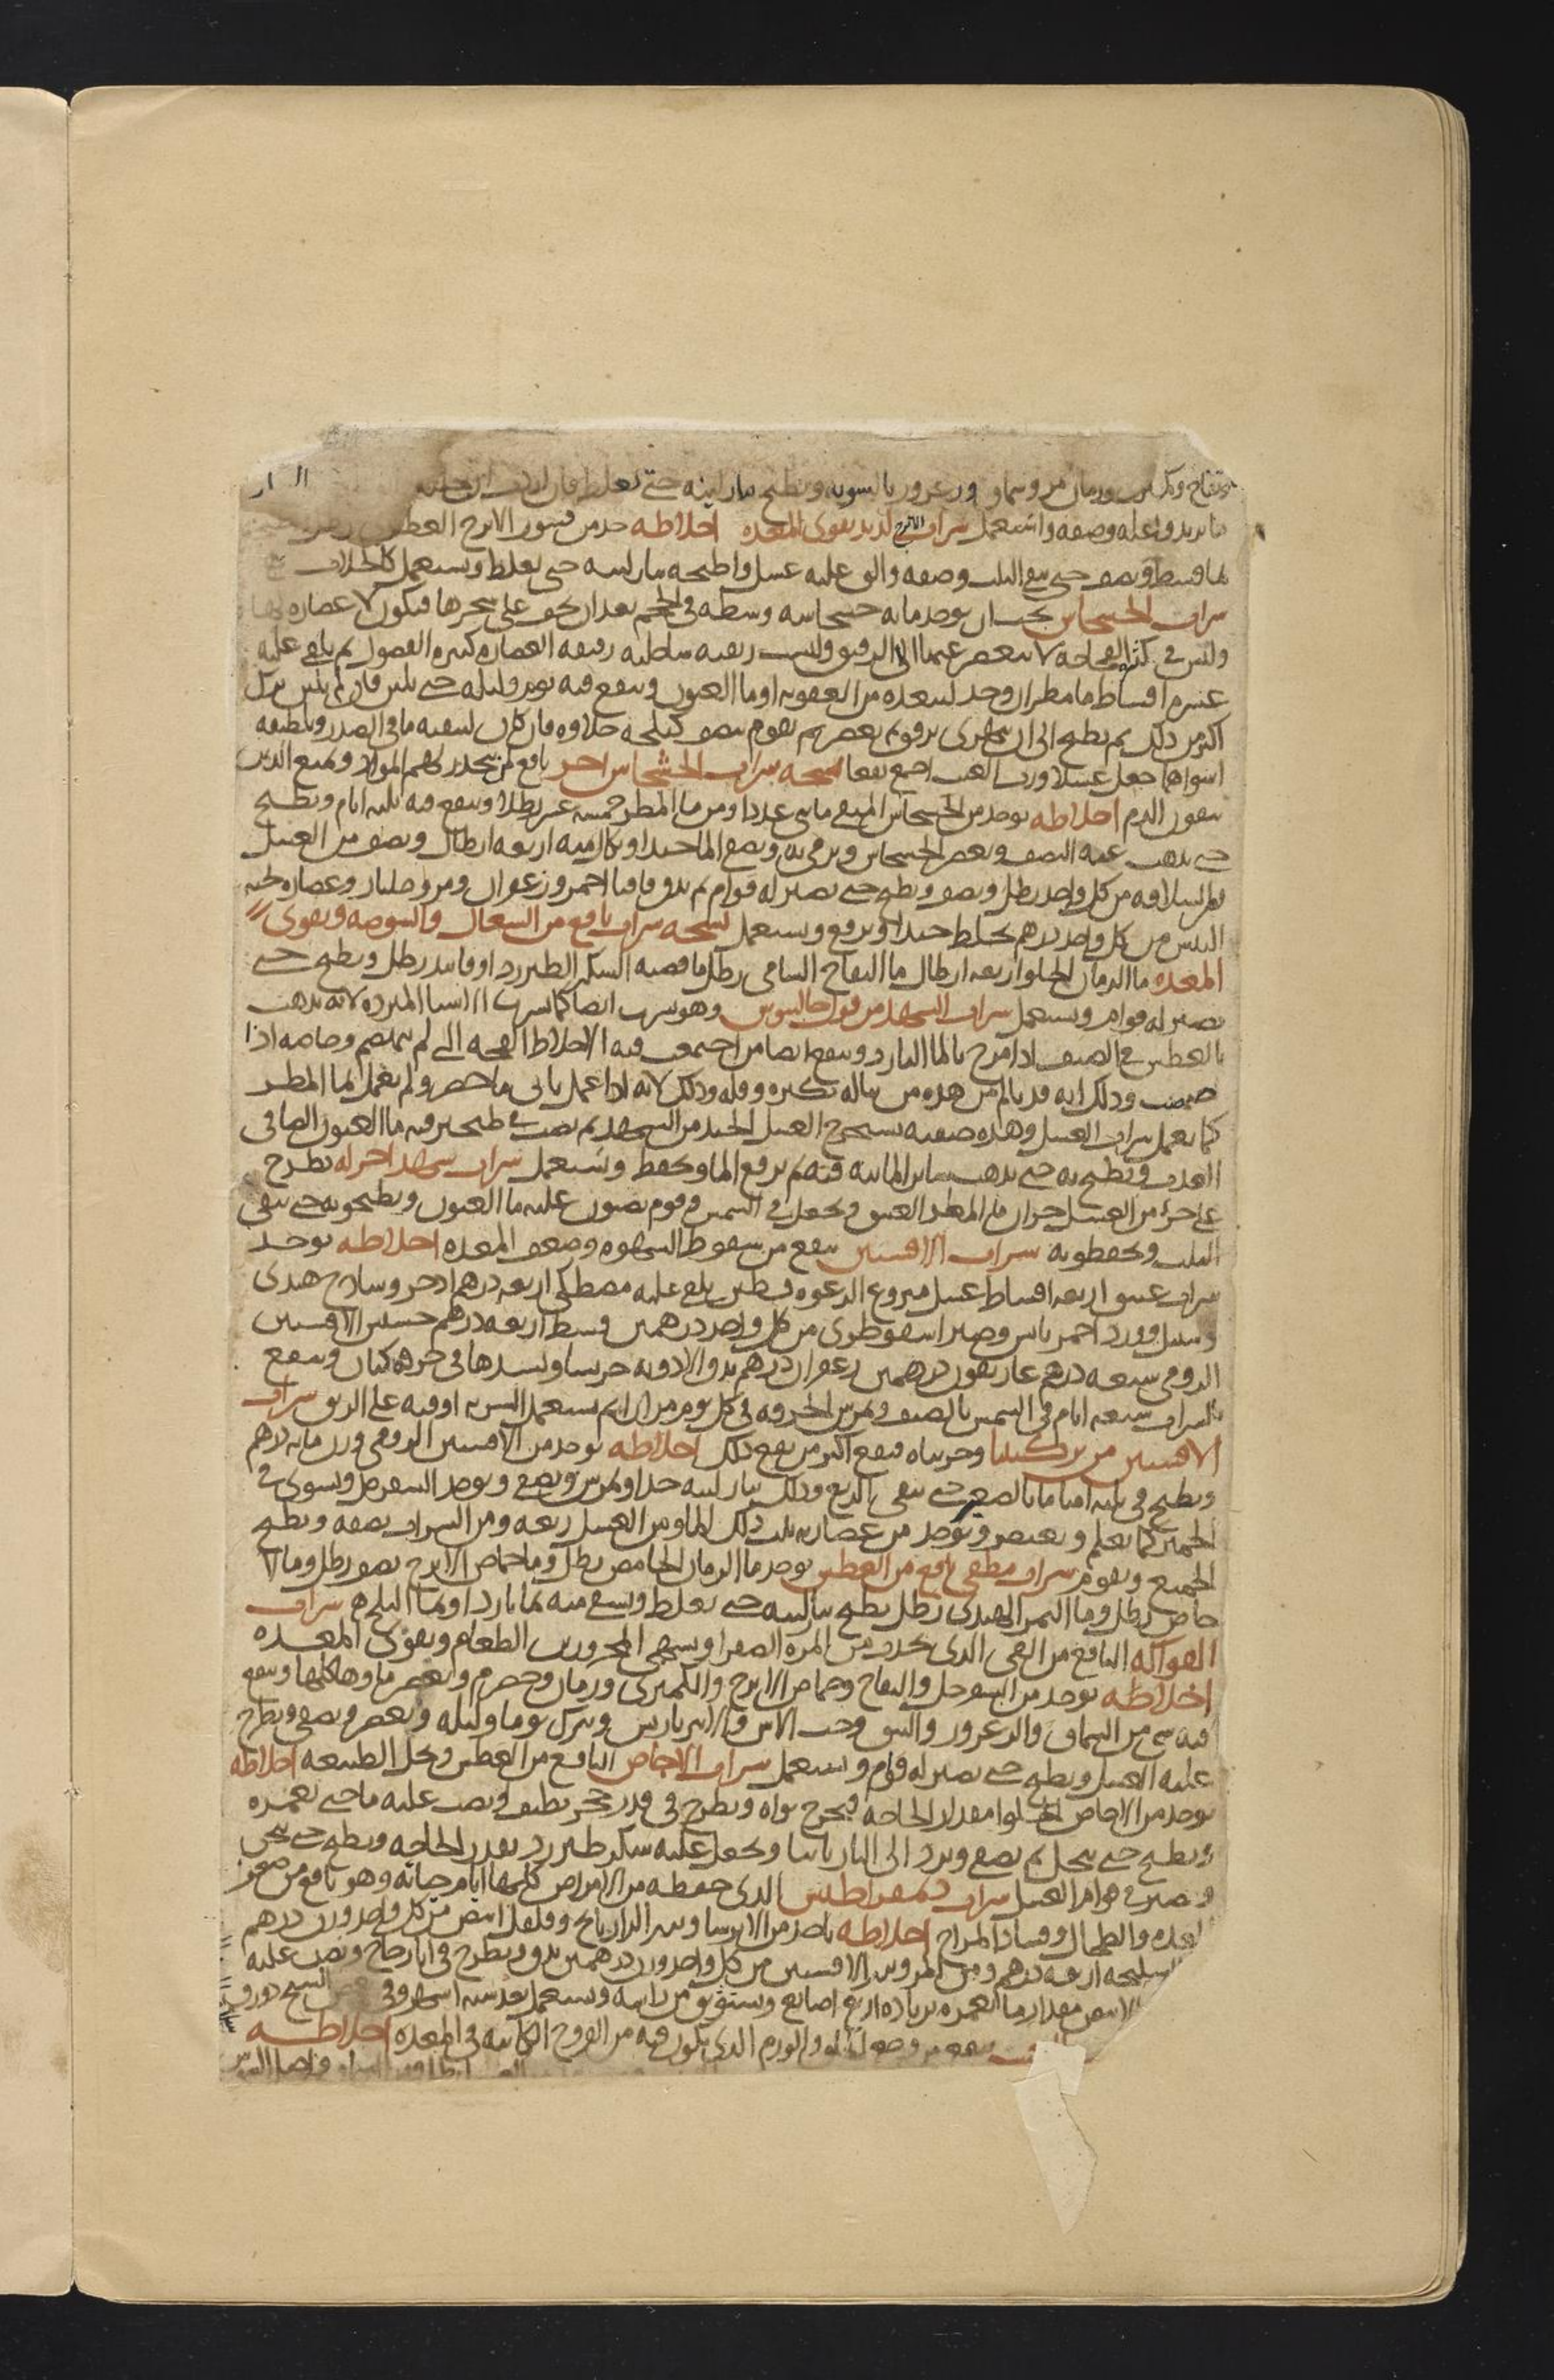 وتفاح وكمثرى ورمان مز وسماق وزعرور بالسوية ويطبخ بنار لينة حتى يغلظ فان
ما تريد واغله وصفه واستعمل شراب الاترج لذيذ يقوى المعدة اخلاطه خذ من قشور الاترج العطر
بما قسط ونصف حتى يبقى الثلث وصفه والق عليه عسل واطبخه بنار لينة حتى يغلظ ويستعمل كالجلاب
شراب الخشخاش يجب ان يوخذ مايه خشخاشه وسطه في الحجم بعد ان يجف على شجرها فيكون لا عصارة لها
وليس في الفجاجة لا ينعصر عنها الا الرقيق وليست رطبة رقيقة العصارة كثيرة الفضول ثم يلقى عليه
عشرة اقساط ما مطر ان وجد لبعده من العفونة او ما العيون وينقع فيه يوم وليلة حتى يلين فان لم يلين ترك
اكثر من ذلك ثم يطبخ الى ان يتهرى برفق ثم يعصر ثم يقوم بنصف كيلجة حلاوة فان كان لتنقية ما في الصدر وتلطيفه
جعل عسلا ورب العنب اجمع نفعا نسخه شراب الخشخاش اخر نافع لمن ينحدر الى المواد ويمنع الذين
ينفثون الدم اخلاطه يوخذ من الخشخاش المنقى مايتى عددا ومن ما المطر خمسة عشر رطلا وينقع فيه ثلثة ايام ويطبخ
حتى يذهب عنه النصف ويعصر الخشخاش ويرمى به ويصفى الما جيدا ويكال منه اربعة ارطال ونصف من العسل
والسلافة من كل واحد رطل ونصف ويطبخ حتى يصير له قوام ثم يدق اقاقيا احمر وزعفران ومر وجلنار وعصارة لحية
التيس من كل واحد درهم يخلط جيدا ويرفع ويستعمل نسخه شراب نافع من السعال والشوصة ويقوى
المعدة ما الرمان الحلو اربعة ارطال ما التفاح الشامى رطل ما قصبة السكر الطبرزد او فانيد رطل ويطبخ حتى
يصير له قوام ويستعمل شراب الشهد من قول جالينوس وهو يشرب ايضا كما يشرب الاشيا المبردة لانه يذهب
بالعطش في الصيف اذا مزج بالما البارد وينفع ايضا من اجتمعت فيه الاخلاط الفجة التي لم تنهضم وخاصة اذا
حمضت وذلك انه قد ينال من هذه من يناله بكثرة وقلة وذلك لانه اذا عمل باى ما حضر ولم يعمل بما المطر
كما يعمل شراب العسل وهذه صفته يستخرج العسل الجيد من الشهد ثم يصب في طنجير فيه ما العيون الصافى
العذب ويطبخ به حتى يذهب ساير المائية فيه ثم يرفع الما ويحفظ ويستعمل شراب شهد اخر له يطرح
على جزء من العسل جزان من المطر العتيق ويجعل في الشمس وقوم يصبون عليه ما العيون ويطبخونه حتى يبقى
الثلث ويحفظونه شراب الافسنتين ينفع من سقوط الشهوة وضعف المعدة اخلاطه يوخذ
شراب عتيق اربعة اقساط عسل منزوع الرغوة قسطين يلقى عليه مصطكى اربعة دراهم اذخر وساذج هندى
وسنبل وورد احمر يابس وصبر اسقوطرى من كل واحد درهمين قسط اربعة دراهم حشيش الافسنتين
الرومى سبعة دراهم غاريقون درهمين زعفران درهم يدق الادوية جريشا وتشدها في خرقة كتان وتنقع
بالشراب سبعة ايام في الشمس بالصيف وتمرس الخرقة في كل يوم مرارا ثم يستعمل الشربة اوقية على الريق شراب
الافسنتين من تركيبنا وجربناه فنفع اكثر من نفع ذلك اخلاطه يوخذ من الافسنتين الرومى وزن مايه درهم
ويطبخ في ثلثة امنا ما بالصغير حتى يبقى الربع وذلك بنار لينة جدا ويمرس ويصفى ويوخذ السفرجل ويشوى في
الخمير كما تعلم ويعتصر ويوخذ من عصارته ثلث ذلك الما ومن العسل ربعه ومن الشراب نصفه ويطبخ
الجميع ويقوم شراب مطفى نافع من العطش يوخذ ما الرمان الحامض رطل وما حماض الاترج نصف رطل وما الا
جاص رطل وما التمر الهندى رطل يطبخ بنار لينة حتى يغلظ ويسقى منه بما بارد او بما الثلج شراب
الفواكه النافع من القى الذى يحدث من المرة الصفرا ويشهى المحرورين الطعام ويقوى المعدة
اخلاطه يوخذ من السفرجل والتفاح وحماض الاترج والكمثرى ورمان وحصرم ويعصر ماوها كلها وينقع
فيه شى من السماق والزعرور والنبق وحب الاس والامبرباريس ويترك يوما وليله ويعصر ويصفى ويطرح
عليه العسل ويطبخ حتى يصير له قوام ويستعمل شراب الاجاص النافع من العطش ويحل الطبيعة اخلاطه
يوخذ من الاجاص الحلو مقدار الحاجة فيخرج نواه ويطرح في قدر حجر نظيف ويصب عليه ما حتى يغمره
ويطبخ حتى ينحل ثم يصفى ويرد الى النار ثانيا ويجعل عليه سكر طبرزد بقدر الحاجة ويطبخ حتى يثخن
ويصير في قوام العسل شراب ديمقراطيس الذى حفظه من الامراض كلها ايام حياته وهو نافع من ضعف
المعدة والطحال وفساد المزاج اخلاطه ياخذ من الايرسا وبزر الرازيانج وفلفل ابيض من كل واحد وزن درهم
السليخة اربعة دراهم ومن المر وبزر الافسنتين من كل واحد وزن درهمين يدق ويطرح في انا زجاج ويصب عليه
الابيض مقدار ما يغمره بزيادة اربع اصابع ويستوثق من راسه ويستعمل بعد ستة اشهر وفى بعض النسخ دوروق
الورم الذى يكون فيه من القروح الكاينة في المعدة اخلاطه